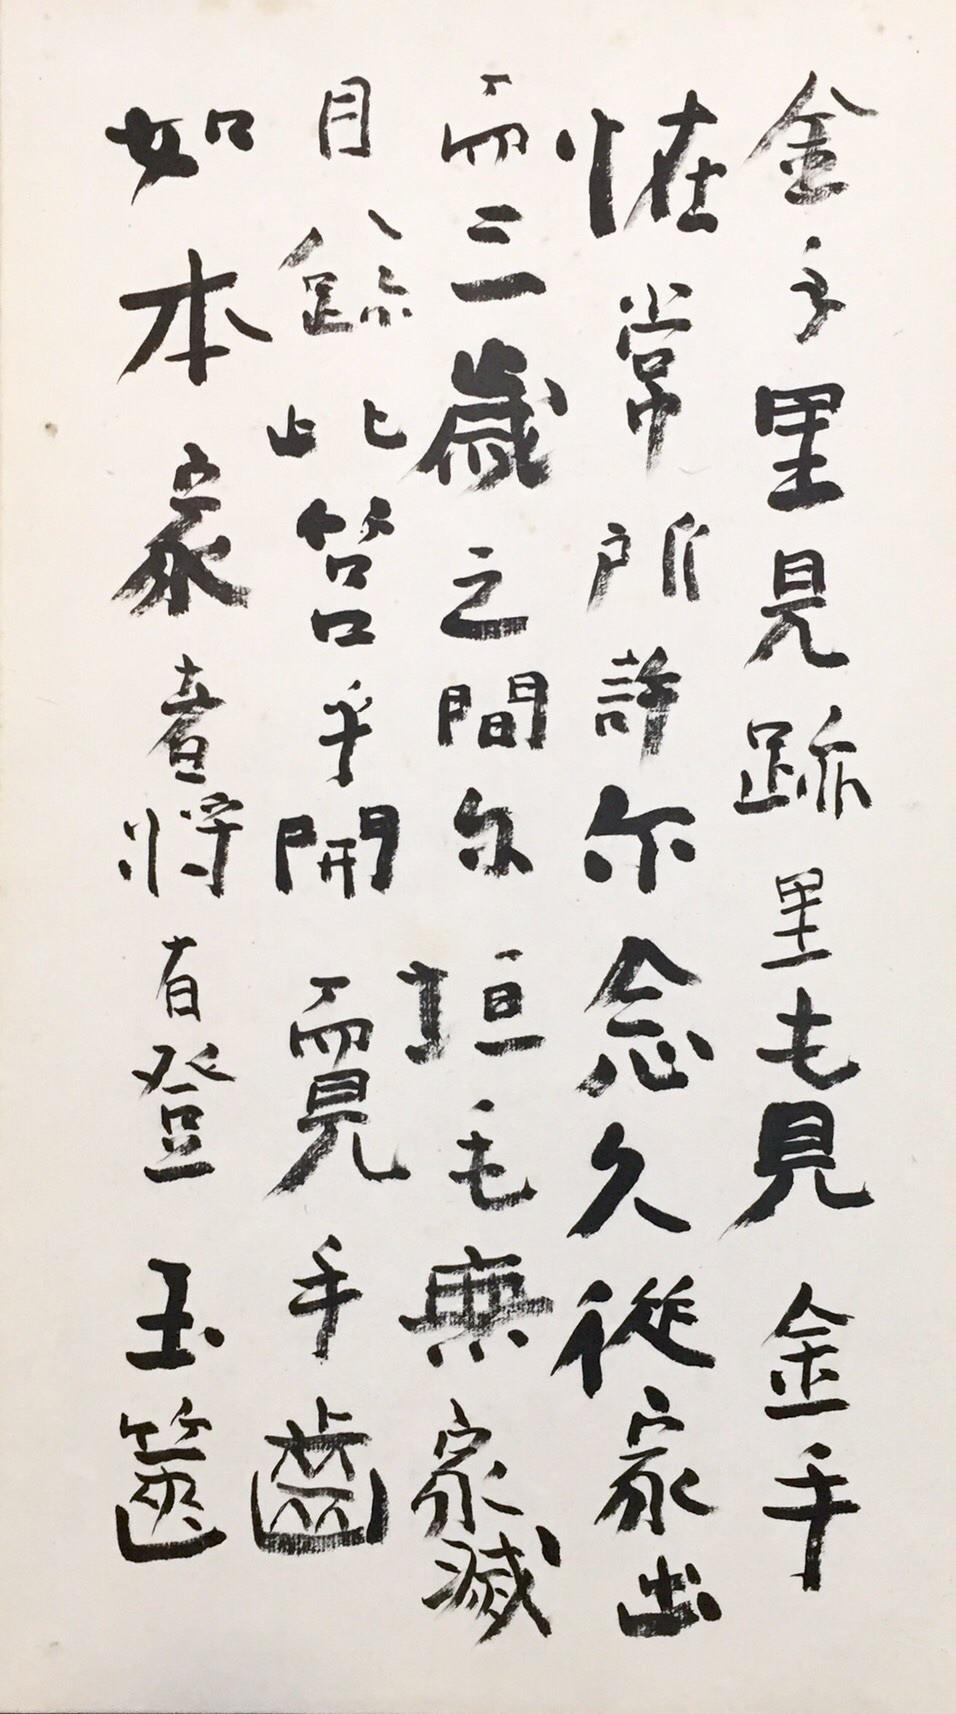 金手里見跡里毛見金手
恠常所許尓念久從家出
而三歳之間尓垣毛無家滅
目八跡此筥乎開而見手齒
如本家者将有登玉篋